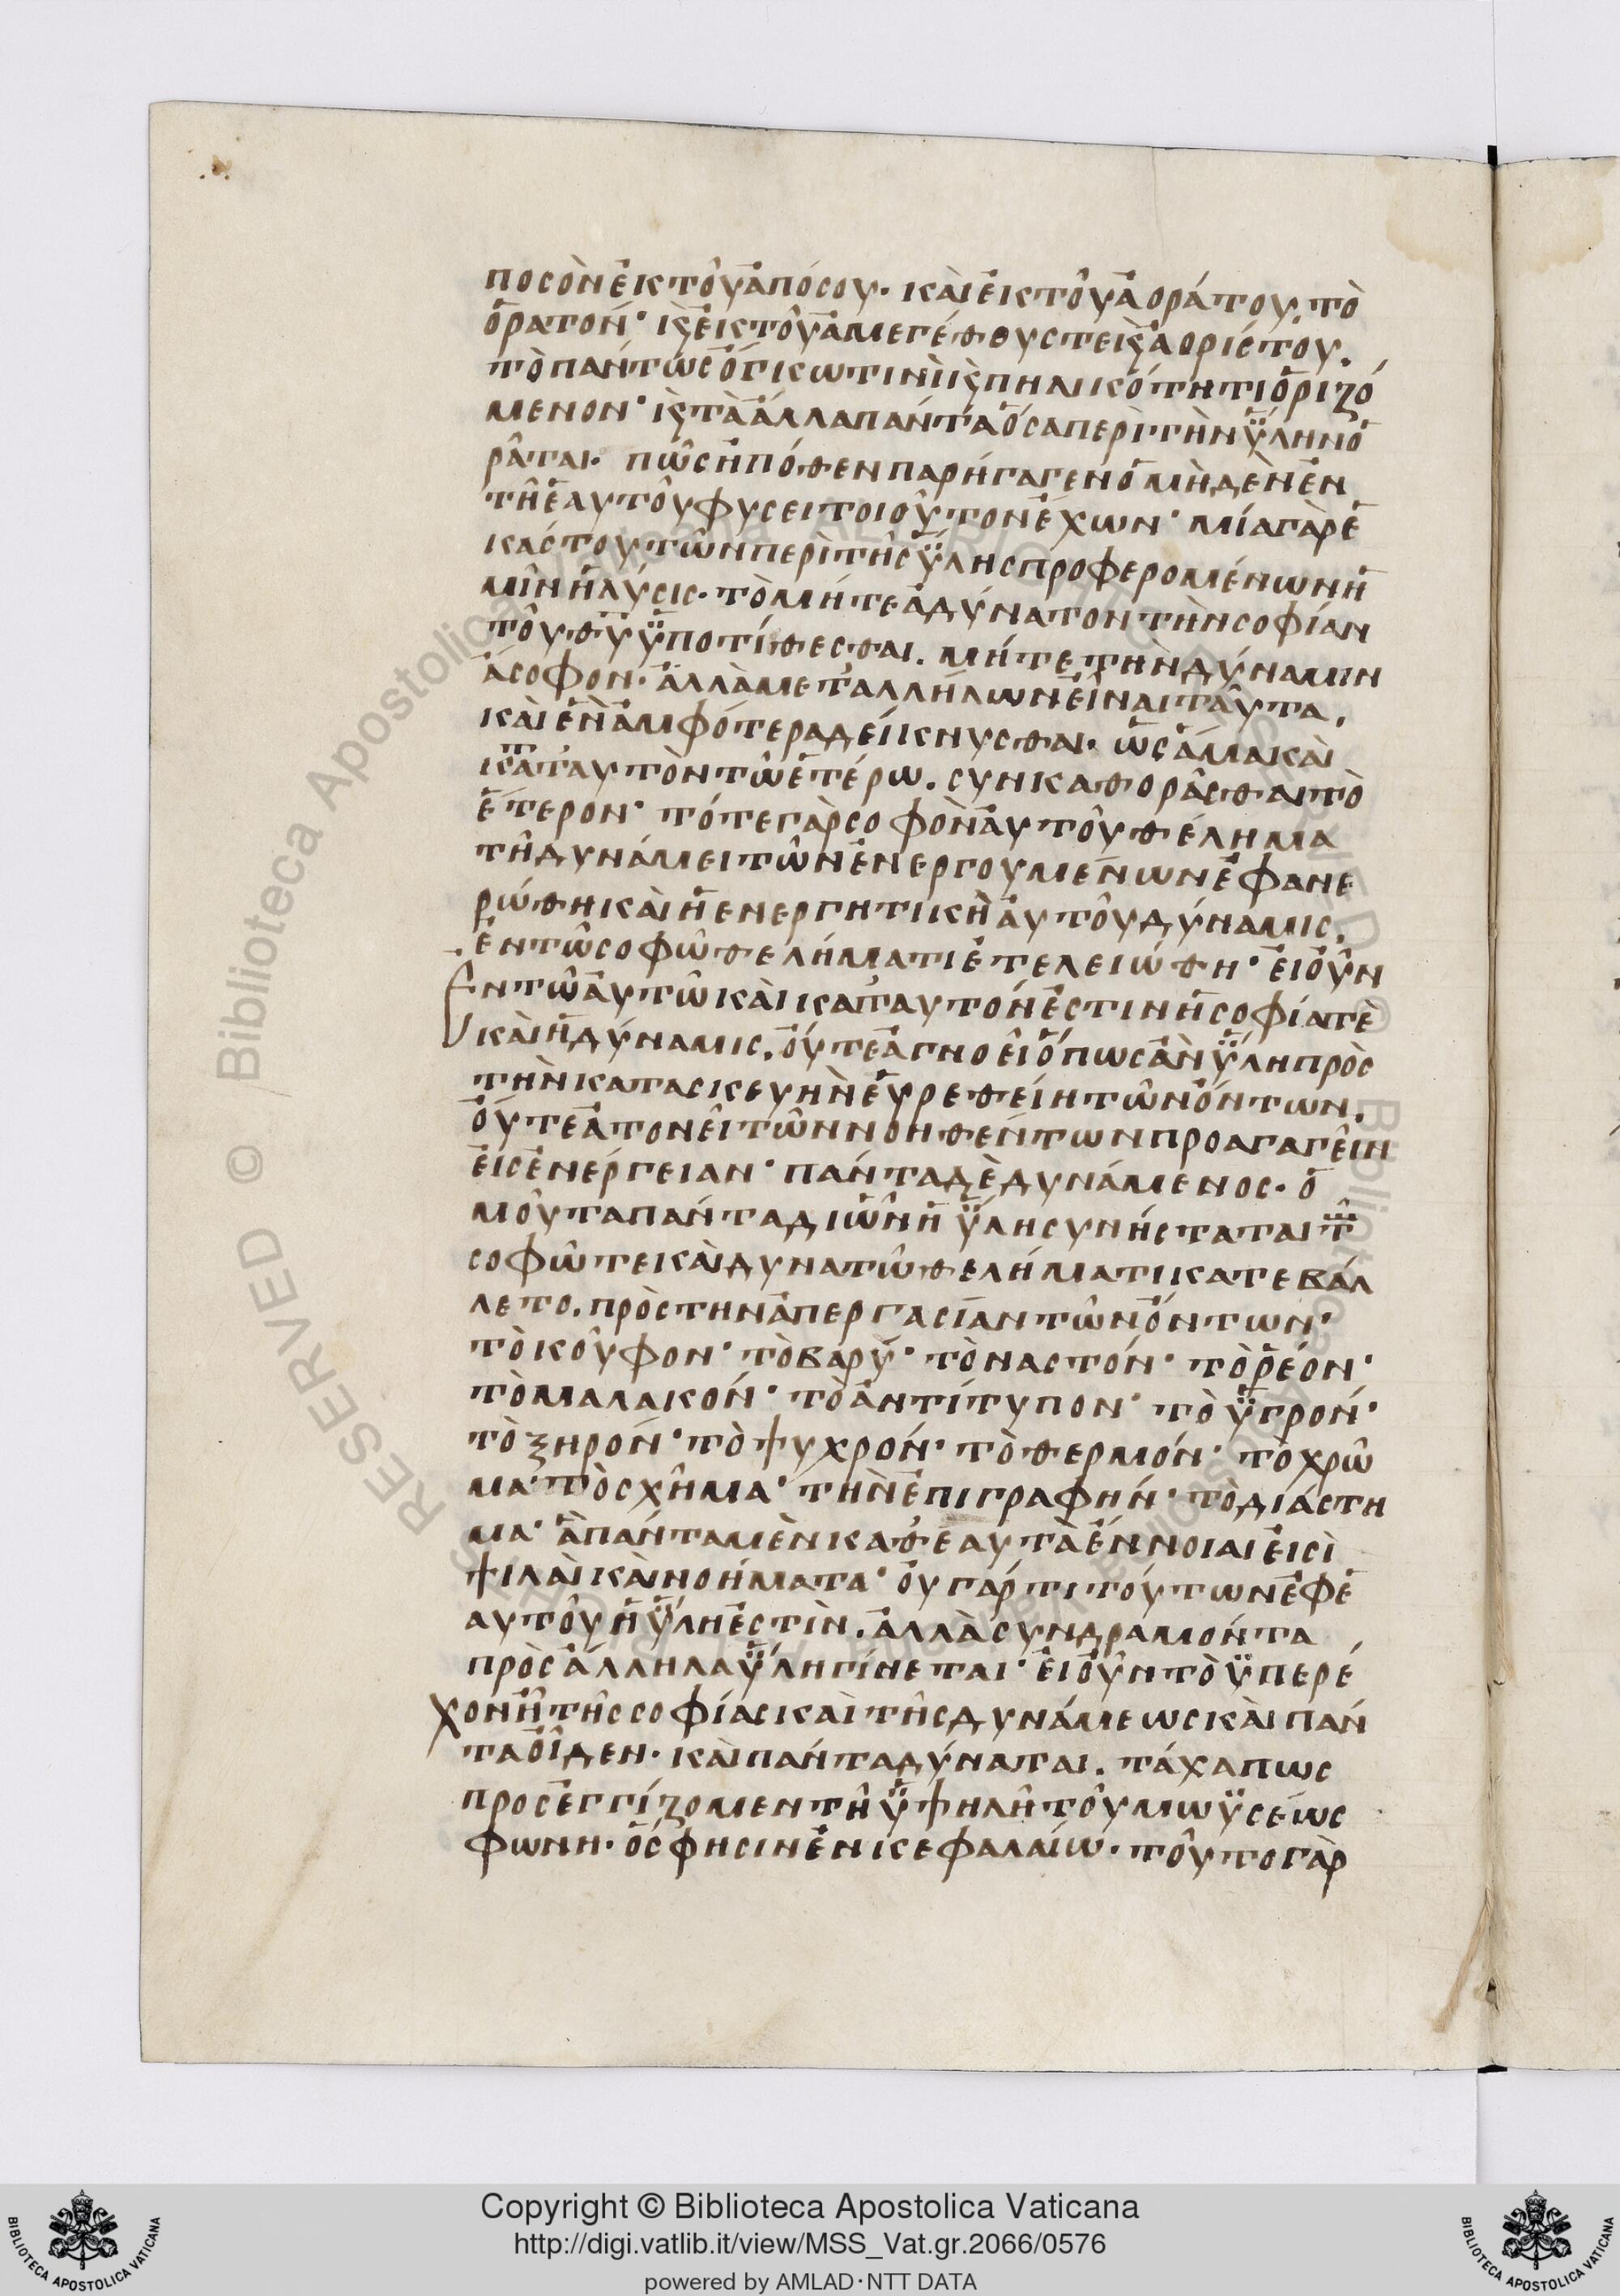 ποσὸν ἐκ τοῦ ἀπόσου· καὶ ἐκ τοῦ ἀοράτου, τὸ
ὁρατόν· κ̀ ἐκ τοῦ ἀμεγέθους τε κ̀ ἀορίστου,
τὸ πάντως ὄγκω τινὶ κ̀ πηλικότητι ὁριζό
μενον· κ̀ τὰ ἄλλα πάντα ὅσα περὶ τὴν ὕλην ὁ
ρᾶται· πῶς ἢ πόθεν παρήγαγεν ὁ μὴδὲν ἐν
τῆ ἑαυτοῦ φυσει τοιοῦτον ἔχων· μία γὰρ ἑ
κάστου τῶν περὶ τῆς ὕλης προφερομένων ἡ
μῖν ἡ λύσις· τὸ μήτε ἀδύνατον τὴν σοφίαν
τοῦ θῦ ὑποτίθεσθαι. μήτε τὴν δύναμιν
ἄσοφον· ἀλλὰ μετ' ἀλλήλων εἶναι ταῦτα,
καὶ ἓν ἀμφότερα δείκνυσθαι· ὡς ἅμα καὶ
κατ' αυτὸν τῶ ἑτέρω. συνκαθορᾶσθαι τὸ
ἕτερον· τό τε γὰρ σοφὸν αυτοῦ θέλημα
τῆ δυνάμει τῶν ἐνεργουμένων ἐφανε
ρώθη καὶ ἡ ενεργητικὴ αὐτοῦ δύναμις,
ἐν τῶ σοφῶ θελήματι ἐτελειώθη· εἰ οὖν
ἐν τῶ αὐτῶ καὶ κατ' αυτόν ἐστιν ἡ σοφία τὲ
καὶ ἡ δύναμις, οὔτε ἀγνοεῖ ὅπως ἂν ὕλη πρὸς
τὴν κατασκευὴν εὑρεθείη τῶν ὄντων,
οὔτε ἀτονεῖ τῶν νοηθέντων προαγαγεῖν
εἰς ἐνέργειαν· πάντα δὲ δυνάμενος· ὁ
μοῦ τα πάντα δι ὧν ἡ ὕλη συνήσταται τ
σοφῶ τε καὶ δυνατῶ θελήματι κατεβάλ
λετο. πρὸς την ἀπεργασίαν τῶν ὄντων·
τὸ κοῦφον· τὸ βαρύ· τὸ ναστόν· τὸ ῥέον·
τὸ μαλακόν· τὸ ἀντίτυπον· τὸ ὑγρόν·
τὸ ξηρόν· τὸ ψυχρόν· τὸ θερμόν· τὸ χρῶ
μα· τὸ σχῆμα· τὴν ἐπιγραφήν· τὸ διάστη
μα· ἃ πάντα μὲν καθ' ἑαυτὰ ἔννοιαι εἰσὶ
ψιλαὶ καὶ νοήματα· οὐ γάρ τι τούτων ἐφ ἑ
αυτοῦ ἡ ὕλη ἐστὶν. ἀλλὰ συνδραμόντα
πρὸς ἄλληλα ὕλη γίνεται· εἰ οὖν τὸ ὑπερέ
χον ἢ τῆς σοφίας καὶ τῆς δυνάμεως καὶ πάν
τα οἶδεν· καὶ πάντα δύναται. τάχα πως
προσεγγίζομεν τῆ ὑψηλῆ τοῦ μωϋσέως
φωνη· ὅς φησιν ἐν κεφαλαίω· τοῦτο γὰρ
Copyright © Biblioteca Apostolica Vaticana
http://digi.vatlib.it/view/MSS_Vat.gr.2066/0576
powered by AMLAD·NTT DATA